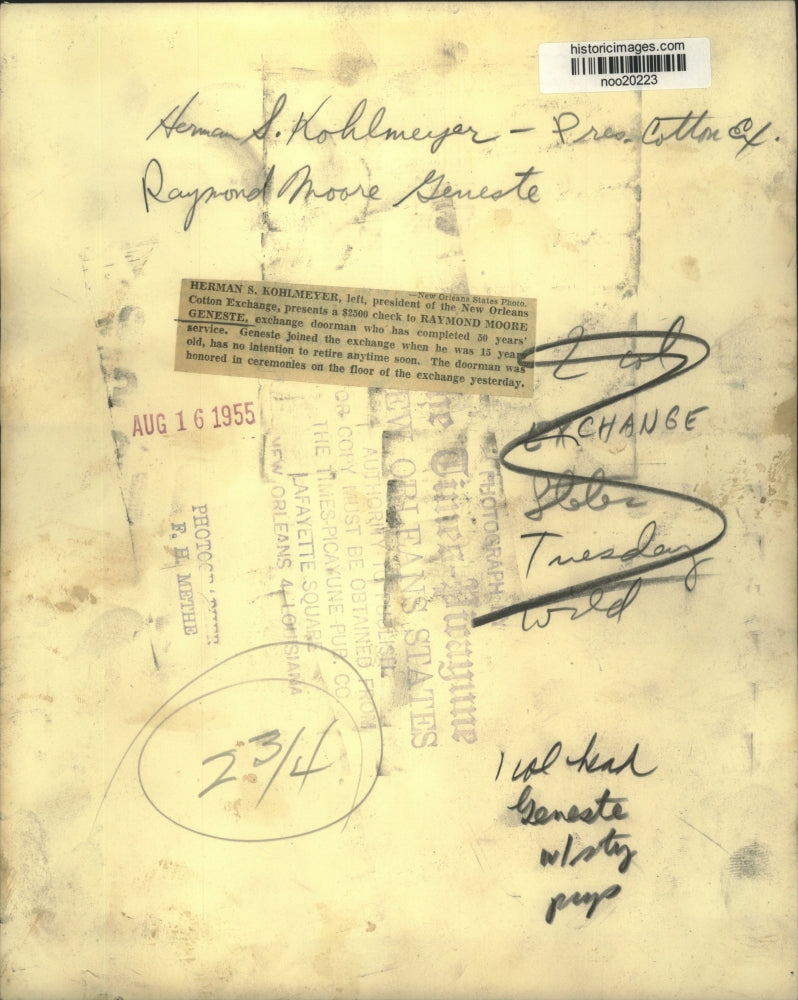 historicimages.com
noo20223
Herman S. Kohlmeyer - Pres. Cotton Ex.
Raymond Moore Geneste
—New Orleans States Photo.
HERMAN S. KOHLMEYER, left, president of the New Orleans
Cotton Exchange, presents a $2500 check to RAYMOND MOORE
GENESTE, exchange doorman who has completed 50 years'
service. Geneste joined the exchange when he was 15 years
old, has no intention to retire anytime soon. The doorman was
honored in ceremonies on the floor of the exchange yesterday.
AUG 16 1955
2 col
EXCHANGE
States
Tuesday
PHOTOGRAPH
The Times-Picayune
NEW ORLEANS STATES
AUTHORITY TO PUBLISH
OR COPY MUST BE OBTAINED FROM
THE TIMES-PICAYUNE PUB. CO.
LAFAYETTE SQUARE
NEW ORLEANS 4, LOUISIANA
F. H. METHE
2 3/4
1 col head
Geneste
w/sty